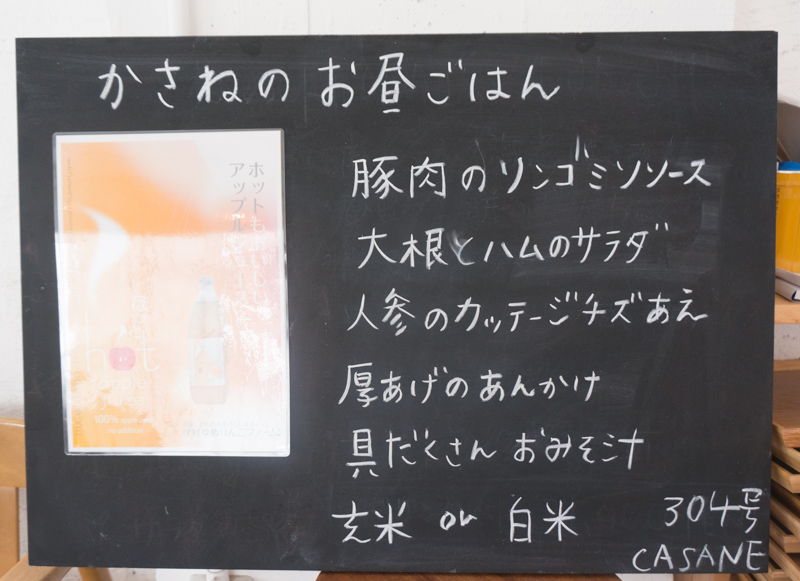 かさねのお昼ごはん
豚肉のリンゴミソソース
大根とハムのサラダ
人参のカッテージチズあえ
厚あげのあんかけ
具だくさん おみそ汁
玄米 or 白米
304号
CASANE
ホットも
アップル
hot
100%